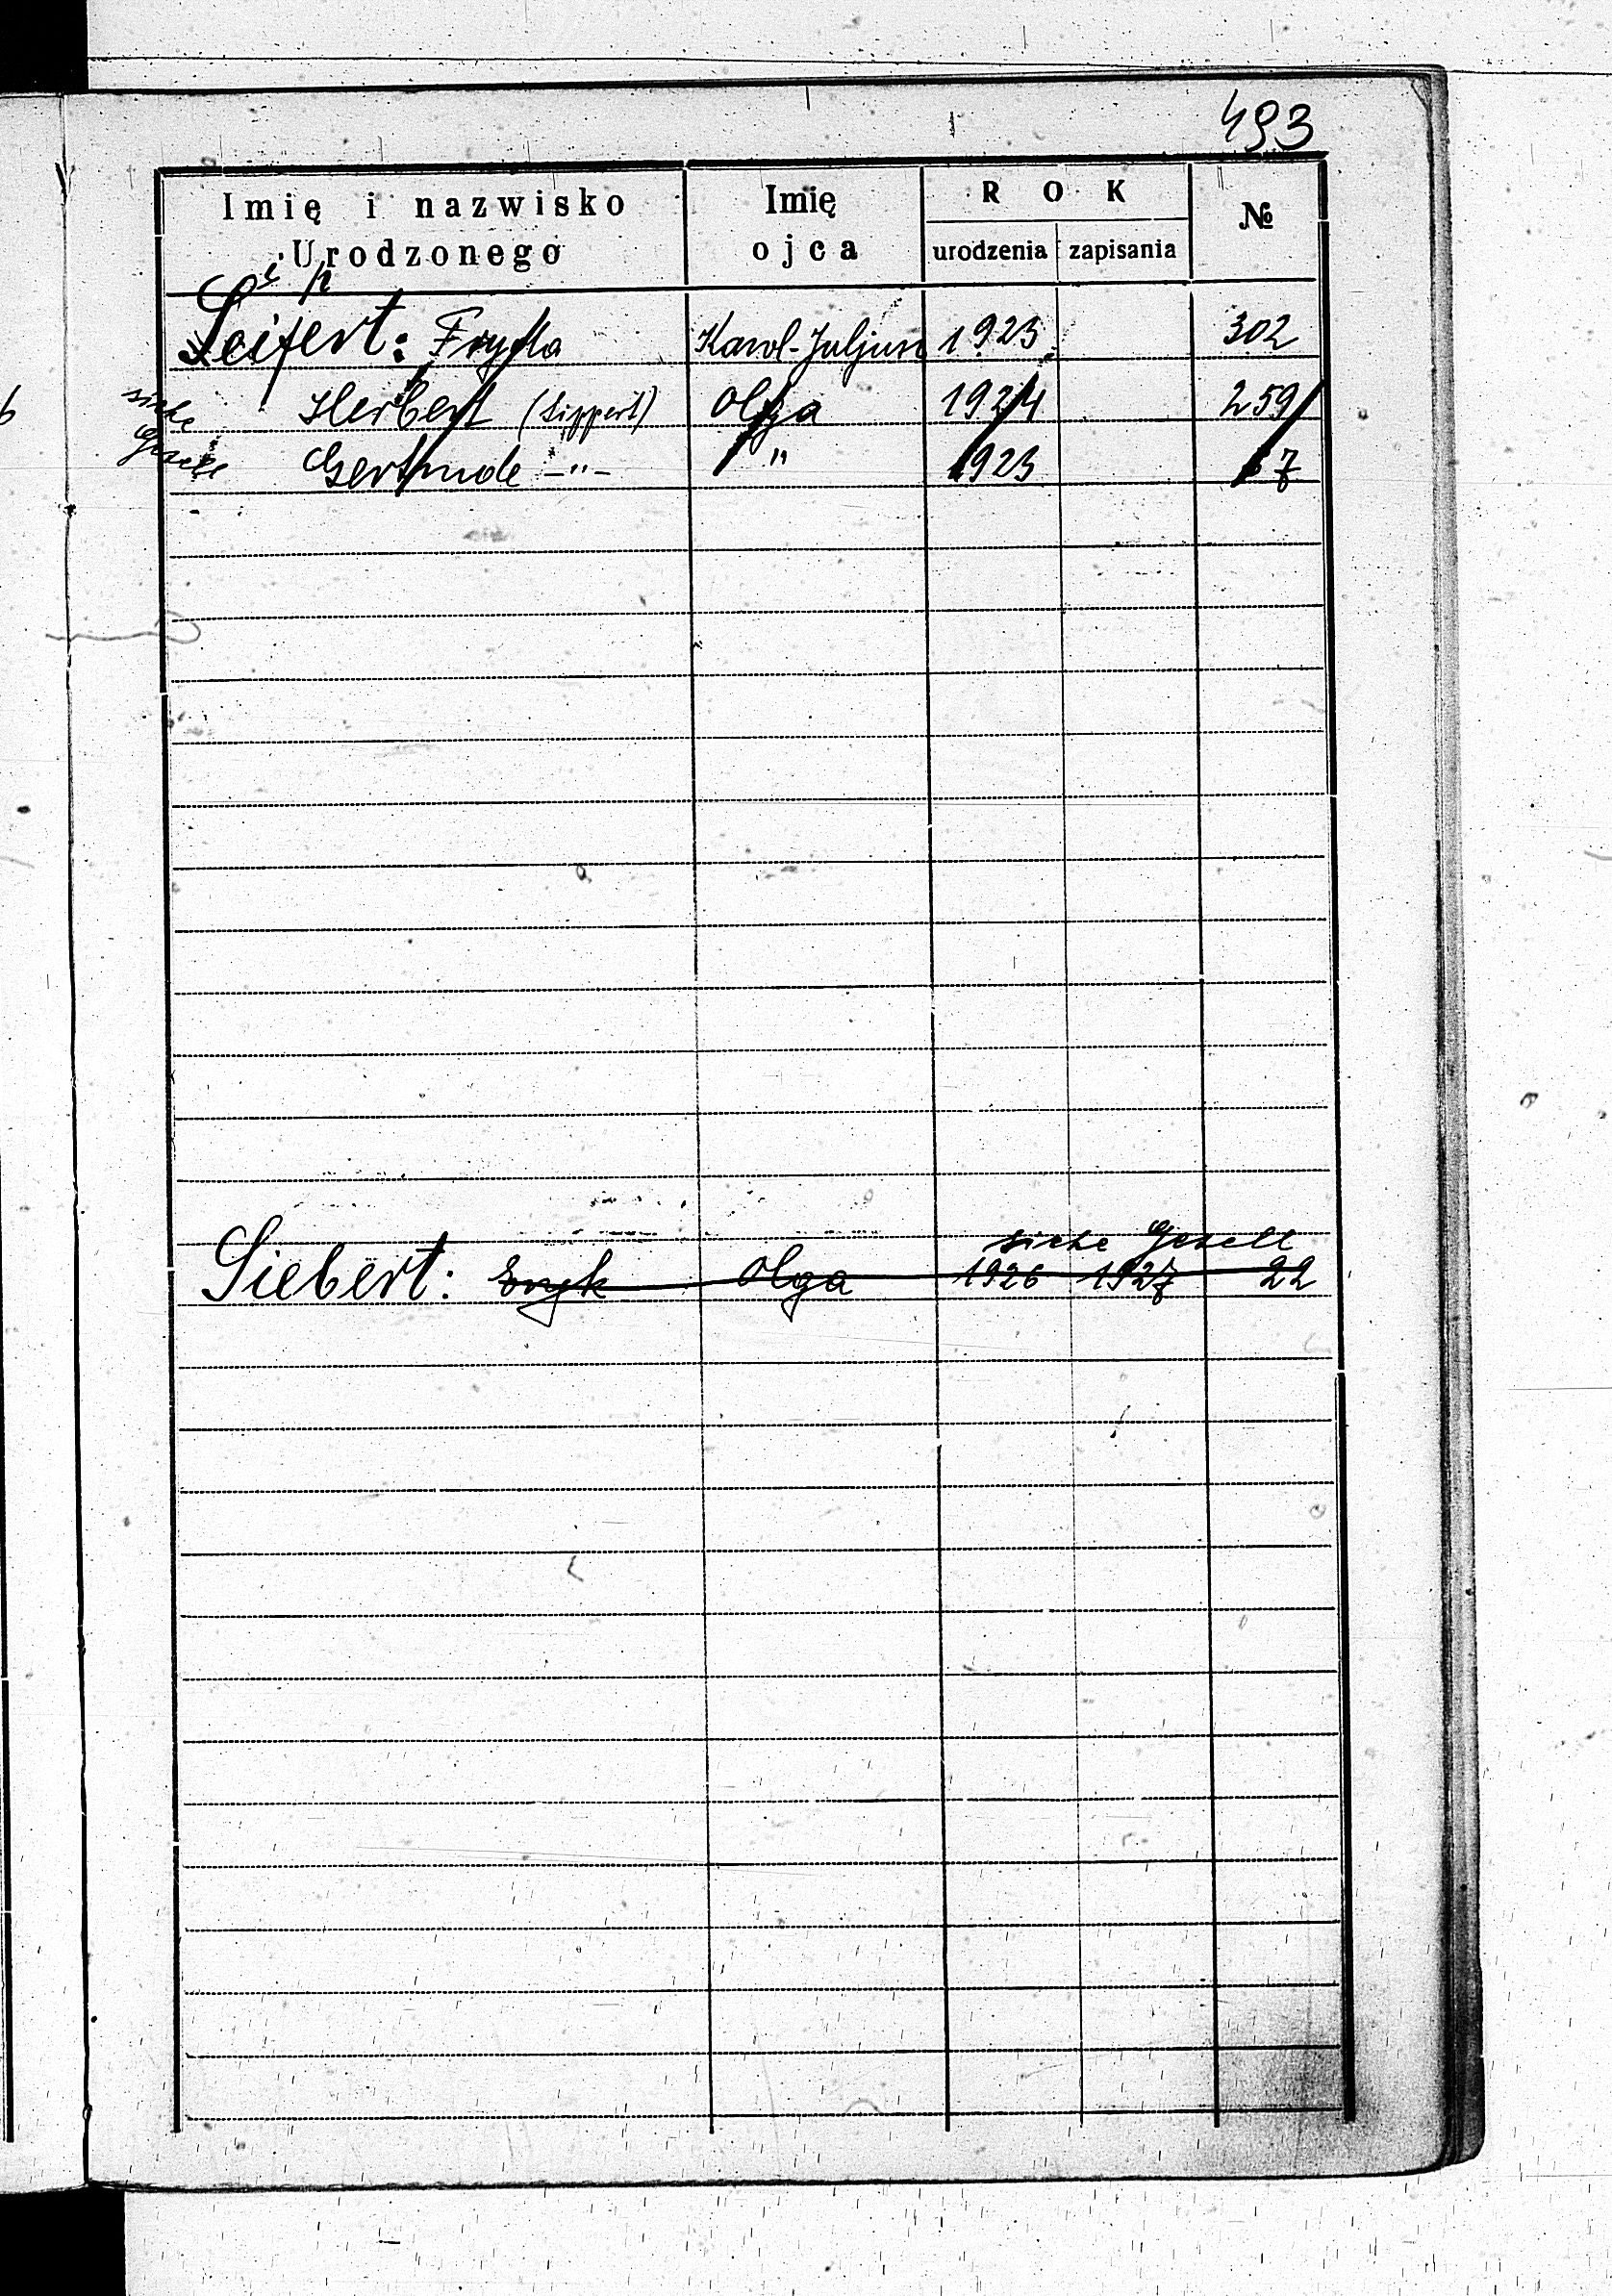 493
Imię i nazwisko Urodzonego Imię ojca ROK urodzenia zapisania №
Seifert: Fryda Karol-Juljusz 1923 302
siehe Gesell Herbert (Sippert) Olga 1924 259
Gertrude —"— " 1923 7
siehe Gesell
Siebert: Eryk Olga 1926 1927 22